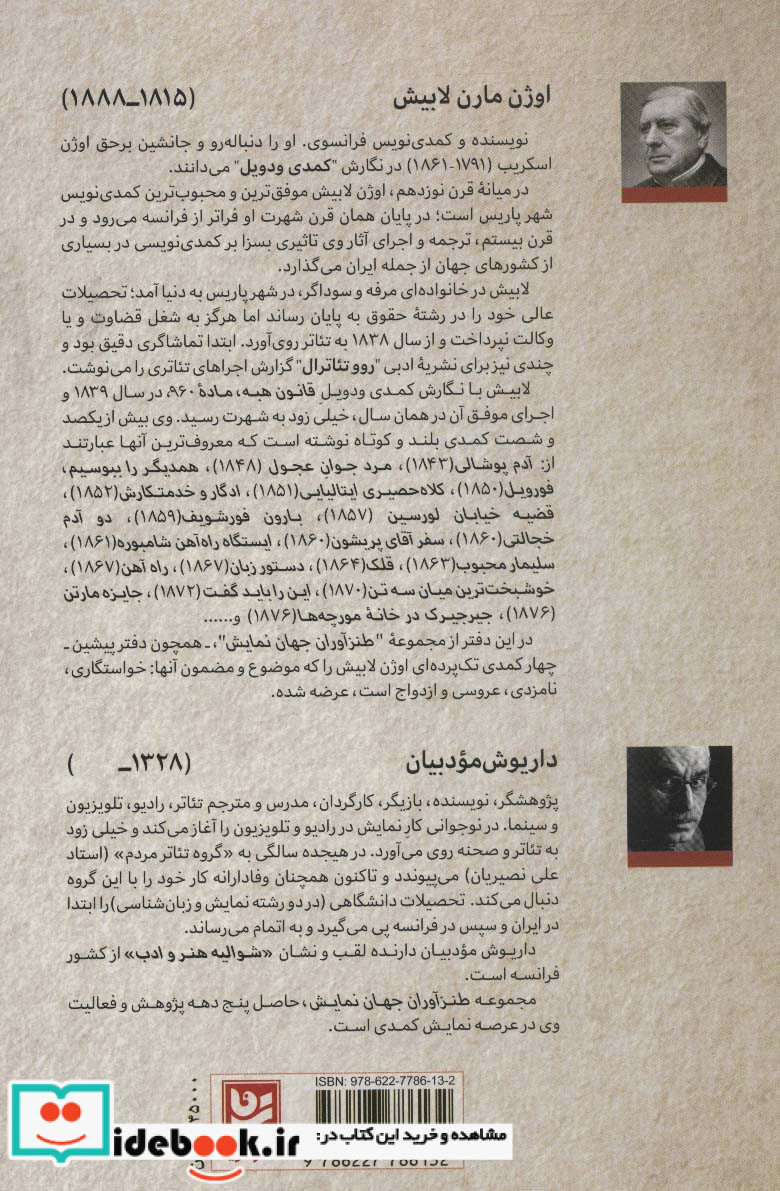 اوژن مارن لابیش (۱۸۱۵ـ۱۸۸۸)
نویسنده و کمدی‌نویس فرانسوی. او را دنباله‌رو و جانشین برحق اوژن
اسکریب (۱۷۹۱-۱۸۶۱) در نگارش "کمدی ودویل" می‌دانند.
در میانهٔ قرن نوزدهم، اوژن لابیش موفق‌ترین و محبوب‌ترین کمدی‌نویس
شهر پاریس است؛ در پایان همان قرن شهرت او فراتر از فرانسه می‌رود و در
قرن بیستم، ترجمه و اجرای آثار وی تاثیری بسزا بر کمدی‌نویسی در بسیاری
از کشورهای جهان از جمله ایران می‌گذارد.
لابیش در خانواده‌ای مرفه و سوداگر، در شهر پاریس به دنیا آمد؛ تحصیلات
عالی خود را در رشتهٔ حقوق به پایان رساند اما هرگز به شغل قضاوت و یا
وکالت نپرداخت و از سال ۱۸۳۸ به تئاتر روی‌آورد. ابتدا تماشاگری دقیق بود و
چندی نیز برای نشریهٔ ادبی "روو تئاترال" گزارش اجراهای تئاتری را می‌نوشت.
لابیش با نگارش کمدی ودویل قانون هبه، مادهٔ ۹۶۰، در سال ۱۸۳۹ و
اجرای موفق آن در همان سال، خیلی زود به شهرت رسید. وی بیش از یکصد
و شصت کمدی بلند و کوتاه نوشته است که معروف‌ترین آنها عبارتند
از: آدم پوشالی(۱۸۴۳)، مرد جوان عجول (۱۸۴۸)، همدیگر را ببوسیم،
فورویل(۱۸۵۰)، کلاه‌حصیری ایتالیایی(۱۸۵۱)، ادگار و خدمتکارش(۱۸۵۲)،
قضیه خیابان لورسین (۱۸۵۷)، بارون فورشویف(۱۸۵۹)، دو آدم
خجالتی(۱۸۶۰)، سفر آقای پریشون(۱۸۶۰)، ایستگاه راه‌آهن شامبوره(۱۸۶۱)،
سلیمار محبوب(۱۸۶۳)، قلک(۱۸۶۴)، دستور زبان(۱۸۶۷)، راه آهن(۱۸۶۷)،
خوشبخت‌ترین میان سه تن(۱۸۷۰)، این را باید گفت(۱۸۷۲)، جایزه مارتن
(۱۸۷۶)، جیرجیرک در خانهٔ مورچه‌ها(۱۸۷۶) و......
در این دفتر از مجموعهٔ "طنزآوران جهان نمایش"، ـ همچون دفتر پیشین ـ
چهار کمدی تک‌پرده‌ای اوژن لابیش را که موضوع و مضمون آنها: خواستگاری،
نامزدی، عروسی و ازدواج است، عرضه شده.
داریوش مؤدبیان (۱۳۲۸ـ )
پژوهشگر، نویسنده، بازیگر، کارگردان، مدرس و مترجم تئاتر، رادیو، تلویزیون
و سینما. در نوجوانی کار نمایش در رادیو و تلویزیون را آغاز می‌کند و خیلی زود
به تئاتر و صحنه روی می‌آورد. در هیجده سالگی به «گروه تئاتر مردم» (استاد
علی نصیریان) می‌پیوندد و تاکنون همچنان وفادارانه کار خود را با این گروه
دنبال می‌کند. تحصیلات دانشگاهی (در دو رشته نمایش و زبان‌شناسی)را ابتدا
در ایران و سپس در فرانسه پی می‌گیرد و به اتمام می‌رساند.
داریوش مؤدبیان دارنده لقب و نشان «شوالیه هنر و ادب» از کشور
فرانسه است.
مجموعه طنزآوران جهان نمایش، حاصل پنج دهه پژوهش و فعالیت
وی در عرصه نمایش کمدی است.
ISBN: 978-622-7786-13-2
مشاهده و خرید این کتاب در:
idebook.ir